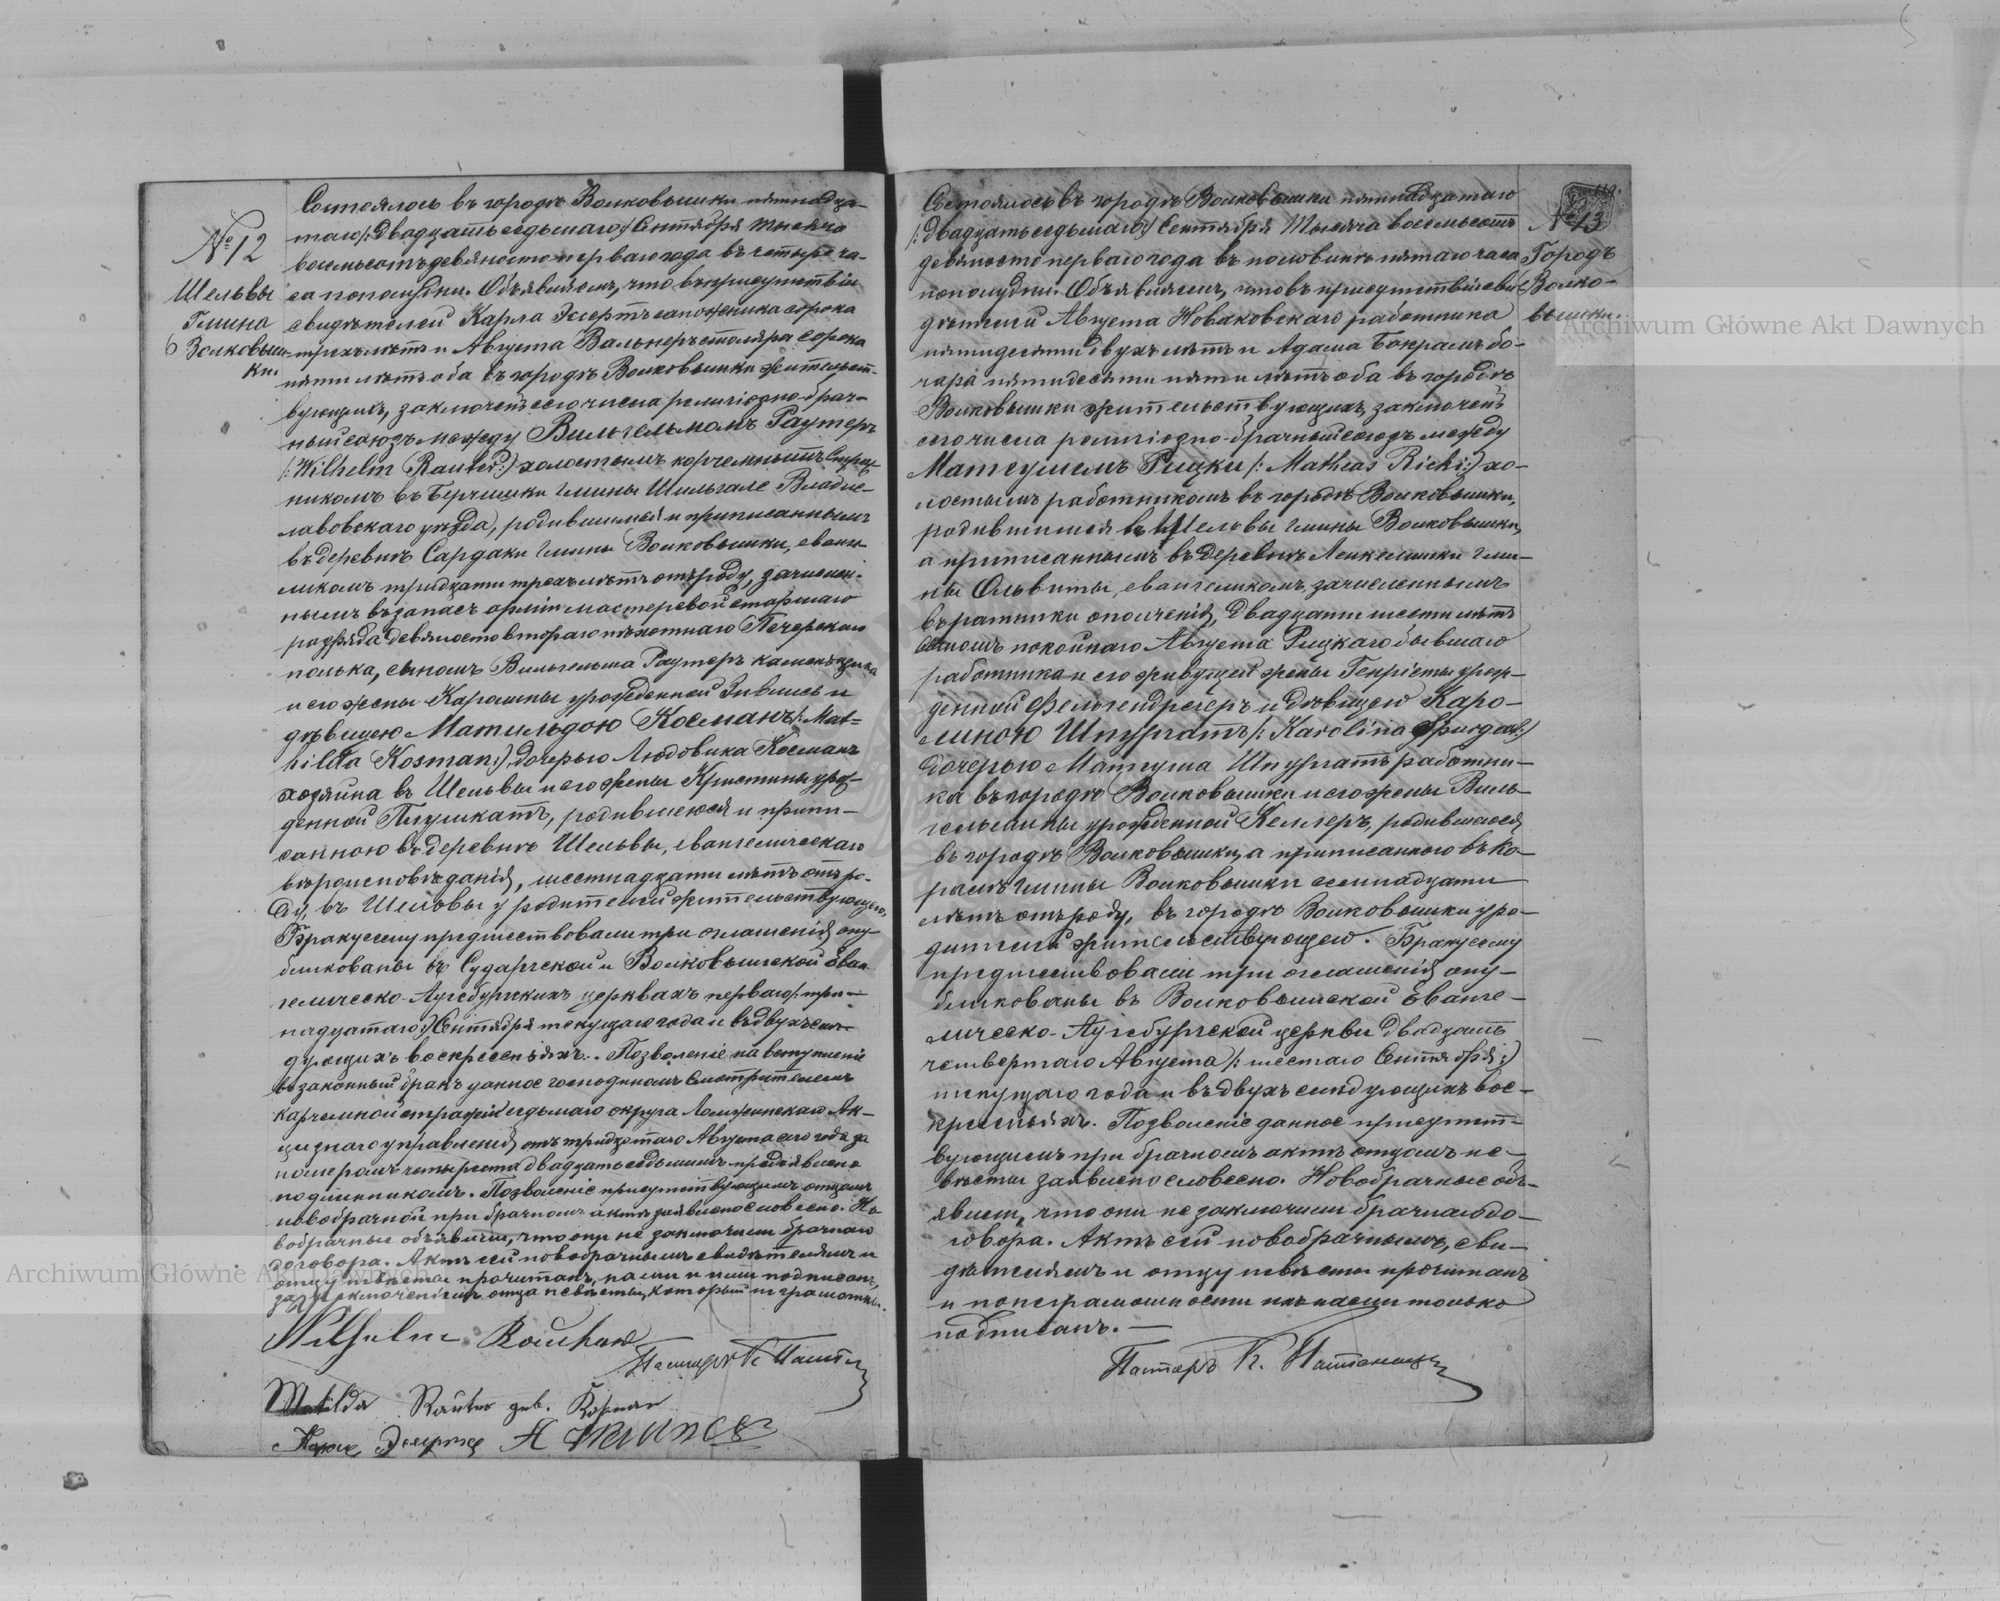 № 12
Шельвы
Гмина
Волковыш-
ки
Состоялось въ городѣ Волковышки пятнадца-
таго /: двадцать седьмаго :/ Сентября тысяча
восемьсотъ девяносто перваго года въ четыре ча-
са пополудни. Объявляемъ, что въ присутствіи
свидѣтелей Карла Эссертъ сапожника сорока
трехъ лѣтъ и Августа Вальнеръ столяра сорока
пяти лѣтъ оба въ городѣ Волковышки жительст-
вующихъ, заключенъ сего числа религіозно-брач-
ный союзъ между Вильгельмомъ Раутеръ
/: Wilhelm Rauter :/ холостымъ корчемнымъ стра-
никомъ въ гмины Шильгале Владис-
лавовскаго уѣзда, родившимся и приписаннымъ
въ деревнѣ Сардаки гмины Волковышки, еванге-
ликомъ тридцати трехъ лѣтъ отъ роду, зачислен-
нымъ въ запасъ арміи мастеровой старшаго
разряда девяносто втораго пѣхотнаго Печерскаго
полька, сыномъ Вильгельма Раутеръ каменьщика
и его жены Каролины урожденной и
дѣвицею Матильдою Косманъ /: Mat=
hilda Kosman :/ дочерью Людовика Косманъ
хозяйна въ Шельвы и его жены Кристины урож-
денной родившеюся и припи-
санною въ деревнѣ Шельвы, евангелическаго
вѣроисповѣданія, шестнадцати лѣтъ отъ ро-
ду, въ Шельвы у родителей жительствующею.
Браку сему предшествовали три оглашенія опу-
бликованы въ Сударгской и Волковышской Еван-
гелическо-Аугсбургскихъ церквахъ перваго /: три-
надцатаго :/ Сентября текущаго года и въ двухъ слѣ-
дующихъ воскресеньяхъ. Позволеніе на вступленіе
въ законный бракъ данное господиномъ Смотрителемъ
корчемной стражи седьмаго округа Ломжинскаго Ак-
цизнаго управленія отъ тридцатаго Августа сего года за
номеромъ четыреста двадцать седьмымъ предъявлено
подлинникомъ. Позволеніе присутствующимъ отцомъ
новобрачной при брачномъ актѣ заявлено словесно. Но-
вобрачные объявили, что они не заключили брачнаго
договора. Актъ сей новобрачнымъ свидѣтелямъ и
отцу невѣсты прочитанъ, нами и ими подписанъ,
за исключеніемъ отца невѣсты, который неграмотный.
Wilhelm
Пасторъ К.
Matilda Räuter geb. Kosman
Карлъ Эссертъ A
№ 13
Городъ
Волко-
вышки.
Состоялось въ городѣ Волковышки пятнадцатаго
/: двадцать седьмаго :/ Сентября тысяча восемьсотъ
девяносто перваго года въ половинѣ пятаго часа
пополудни. Объявляемъ, что въ присутствіи сви-
дѣтелей Августа Новаковскаго работника
пятидесяти двухъ лѣтъ и Адама бо-
чара пятидесяти пяти лѣтъ оба въ городѣ
Волковышки жительствующихъ, заключенъ
сего числа религіозно-брачный союзъ между
Матеушемъ Рицки /: Matheas Ricki :/ хо-
лостымъ работникомъ въ городѣ Волковышки,
родившимся въ Шельвы гмины Волковышки,
а приписаннымъ въ деревнѣ гми-
ны Ольвиты, евангеликомъ, зачисленнымъ
въ ратники ополченія, двадцати шести лѣтъ
сыномъ покойнаго Августа Рицкаго бывшаго
работника и его живущей жены Генріеты урож-
денной и дѣвицею Каро-
линою Шпургатъ /: Karolina Spurgat :/
дочерью Матеуша Шпургатъ работни-
ка въ городѣ Волковышки и его жены Виль-
гельмины урожденной Келлеръ, родившаяся
въ городѣ Волковышки, а приписанною въ ко-
гмины Волковышки семнадцати
лѣтъ отъ роду, въ городѣ Волковышки у ро-
дителей жительствующею. Браку сему
предшествовали три оглашенія опу-
бликованы въ Волковышской Еванге-
лическо-Аугсбургской церкви двадцать
четвертаго Августа /: шестаго Сентября :/
текущаго года и въ двухъ слѣдующихъ вос-
кресеньяхъ. Позволеніе данное присутст-
вующимъ при брачномъ актѣ отцомъ не-
вѣсты заявлено словесно. Новобрачные объ-
явили, что они не заключили брачнаго до-
говора. Актъ сей новобрачнымъ, сви-
дѣтелямъ и отцу невѣсты прочитанъ
и по неграмотности ихъ нами только
подписанъ.
Пасторъ К.
Archiwum Główne Akt Dawnych
Archiwum Główne Akt Dawnych